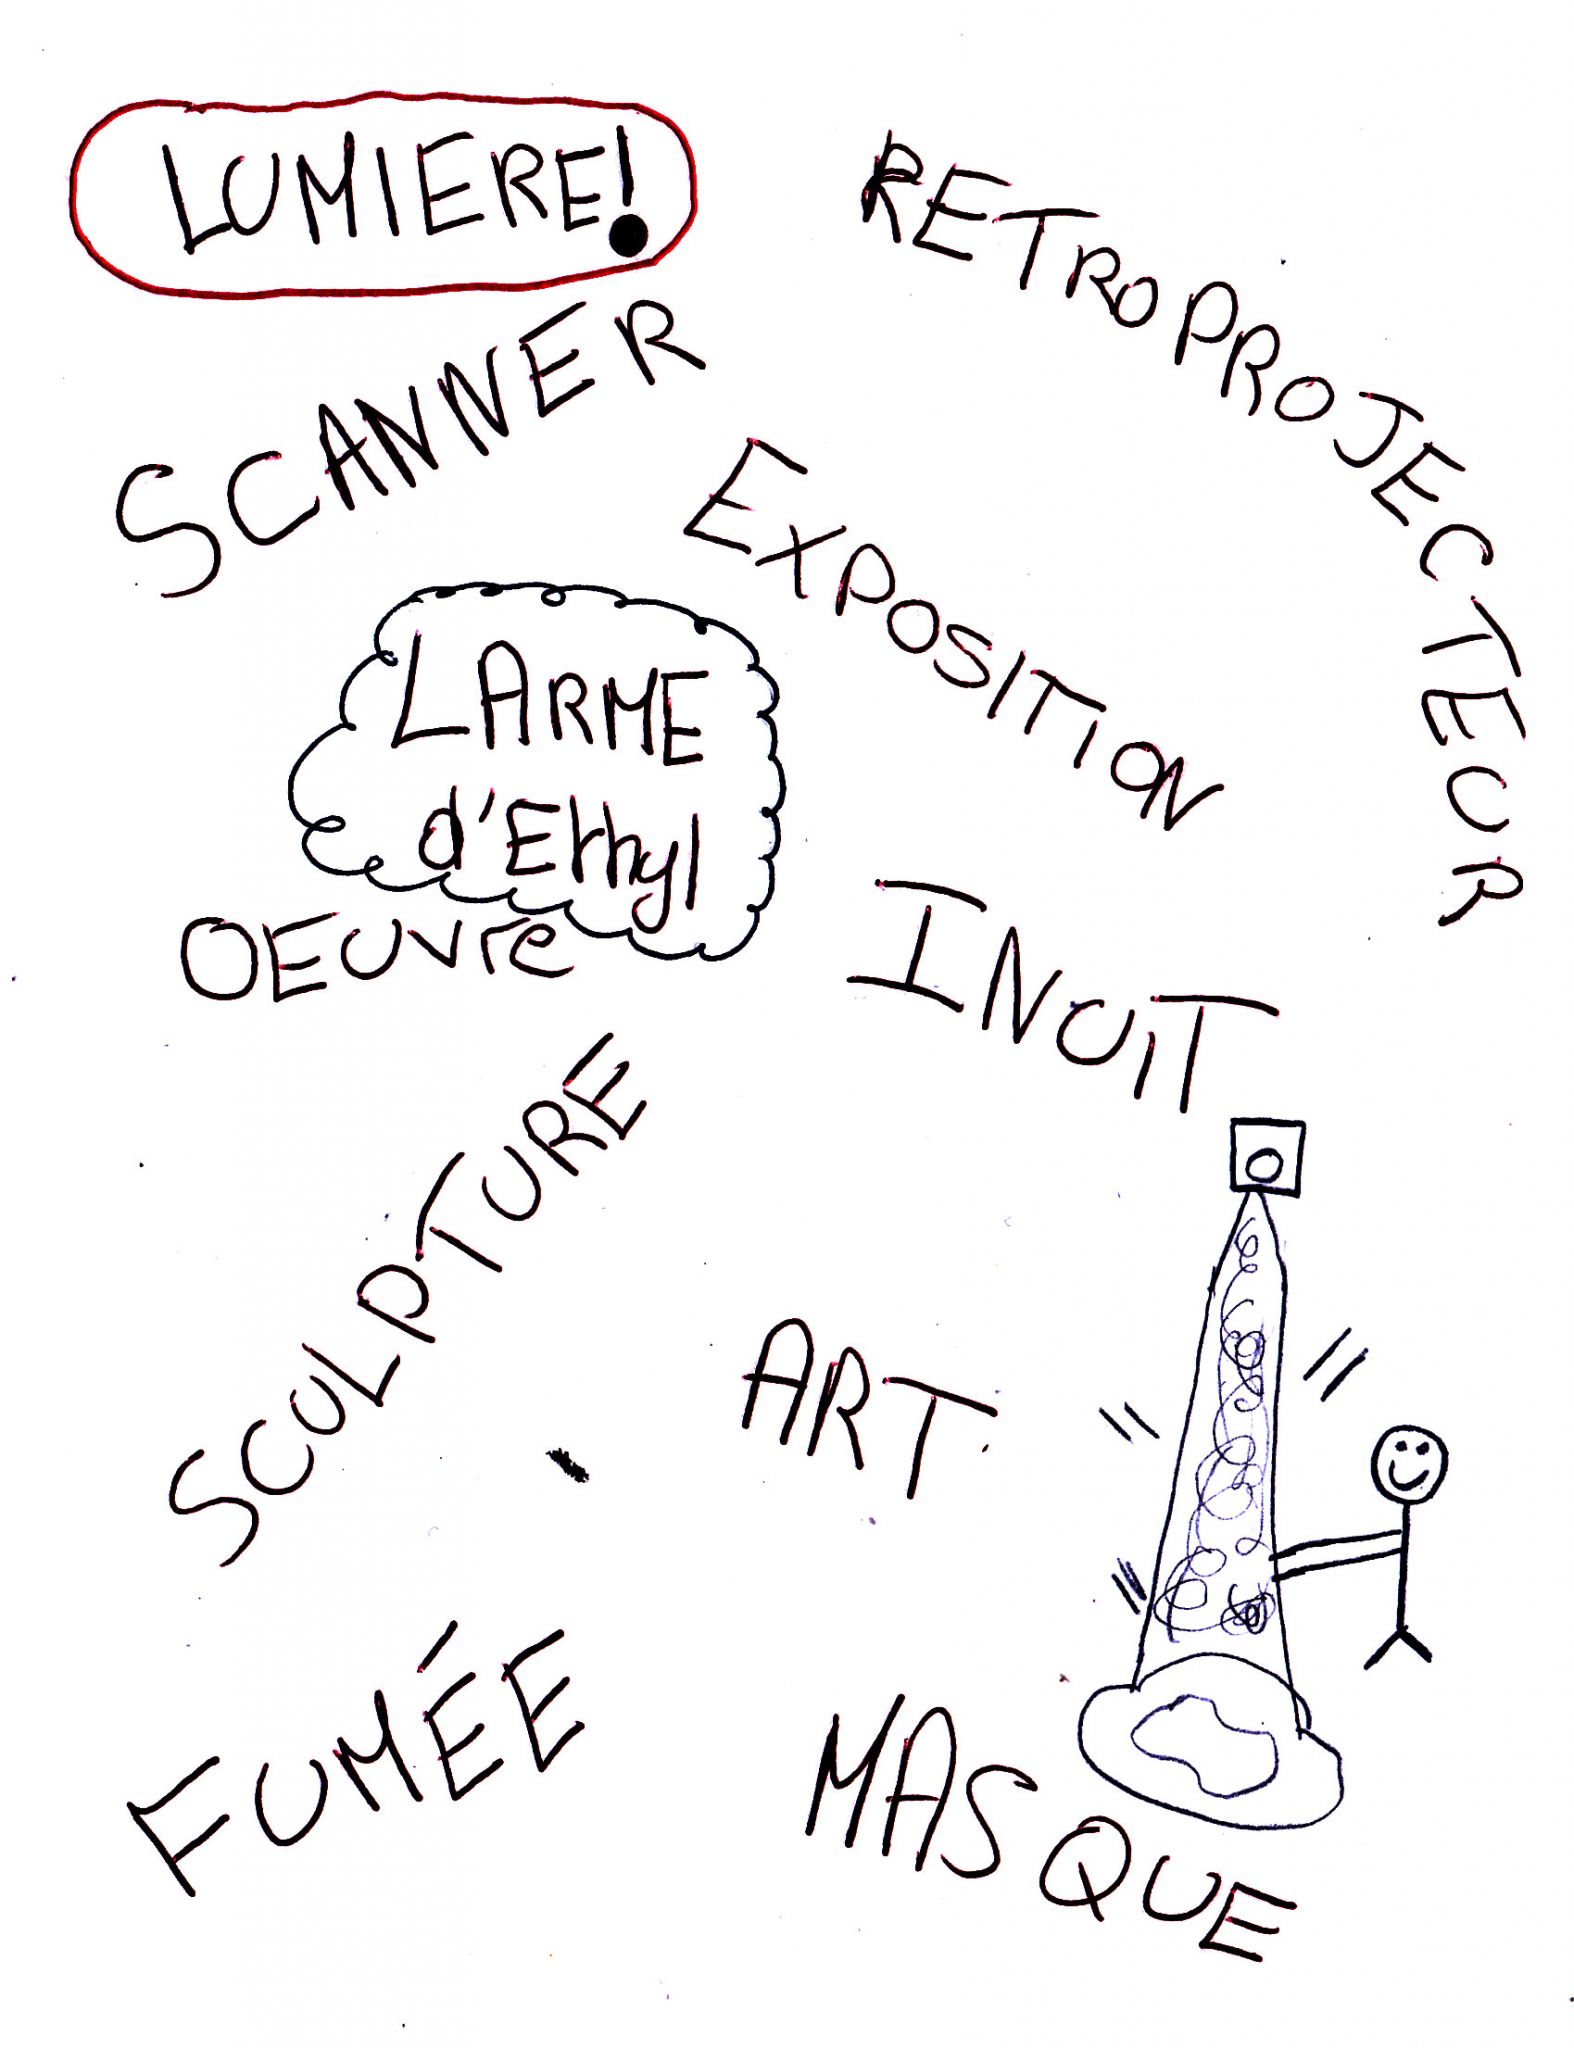 LUMIERE!
RETROPROJECTEUR
SCANNER
EXPOSITION
LARME
d'Ethyl
OEUvre
INUiT
SCULPTURE
ART
FUMÉE
MASQUE